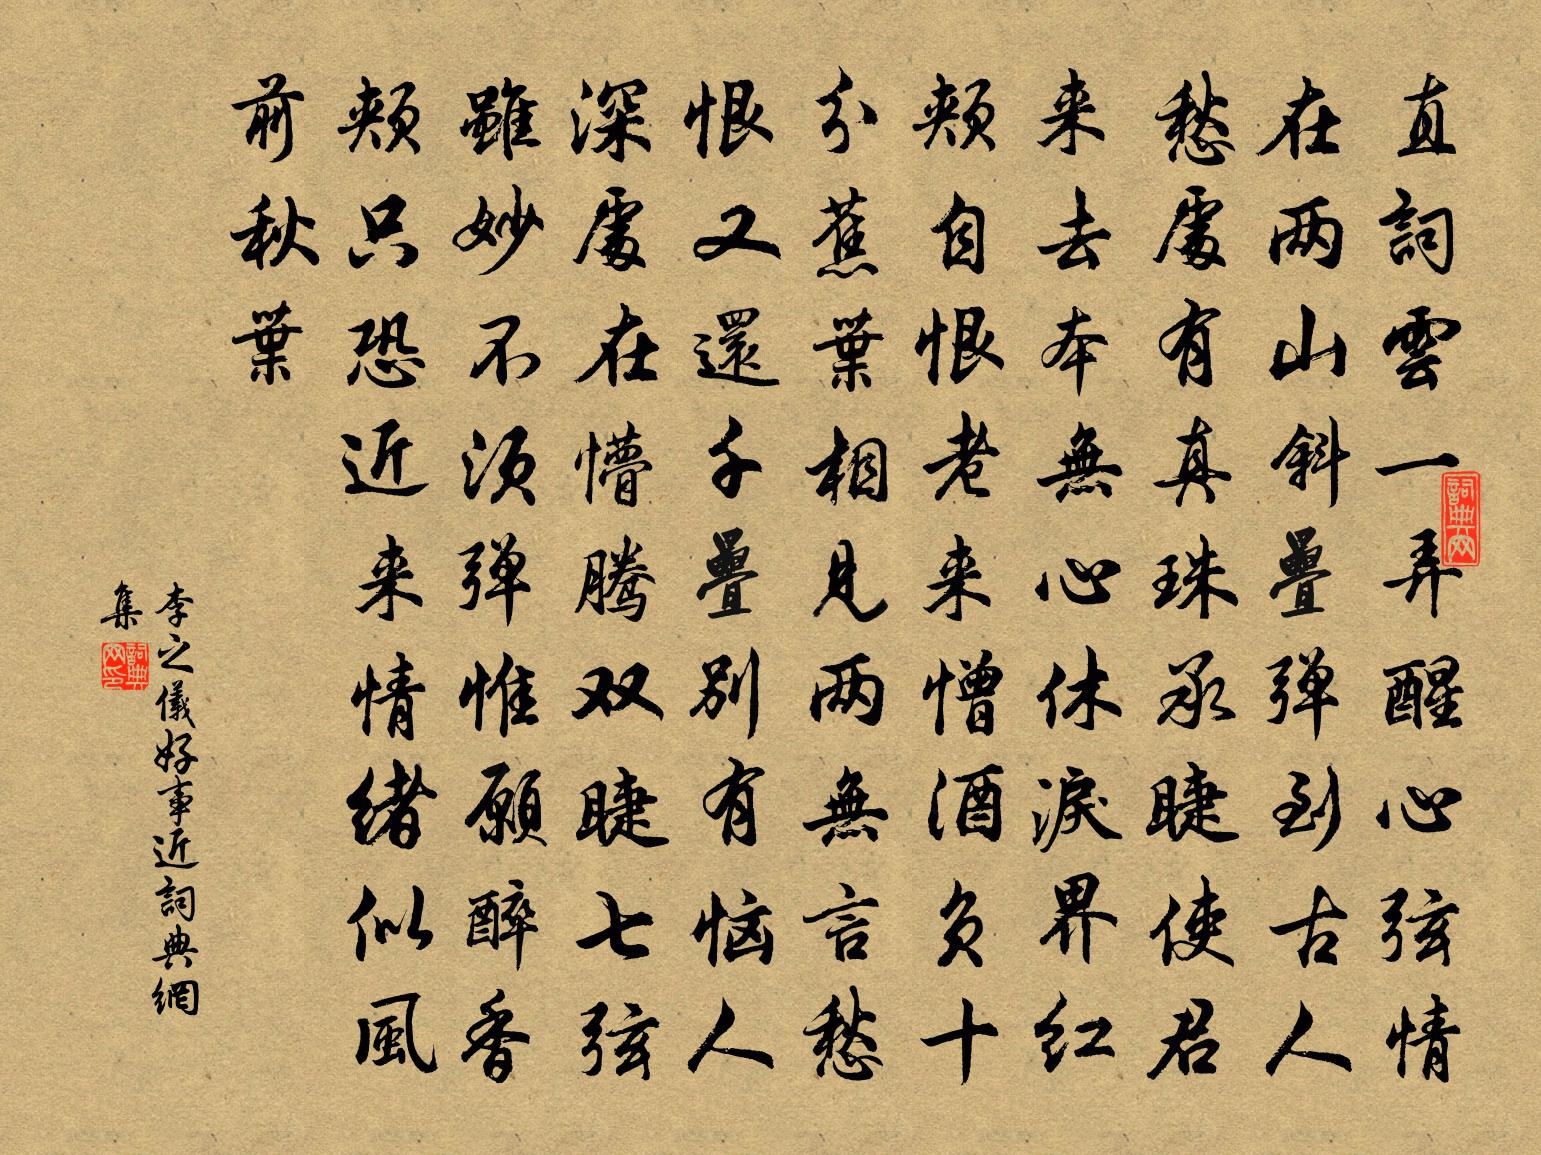 直詞雲一弄醒心弦情
在两山斜疊弹到古人
愁處有真珠承睫使君
来去本無心休淚界红
頰自恨老来憎酒负十
分蕉葉相見两無言愁
恨又還千疊别有恼人
深處在懵騰双睫七弦
雖妙不须弹惟願醉香
頰只恐近来情绪似風
前秋葉
李之儀好事近詞典網
集
詞典网
詞典网印